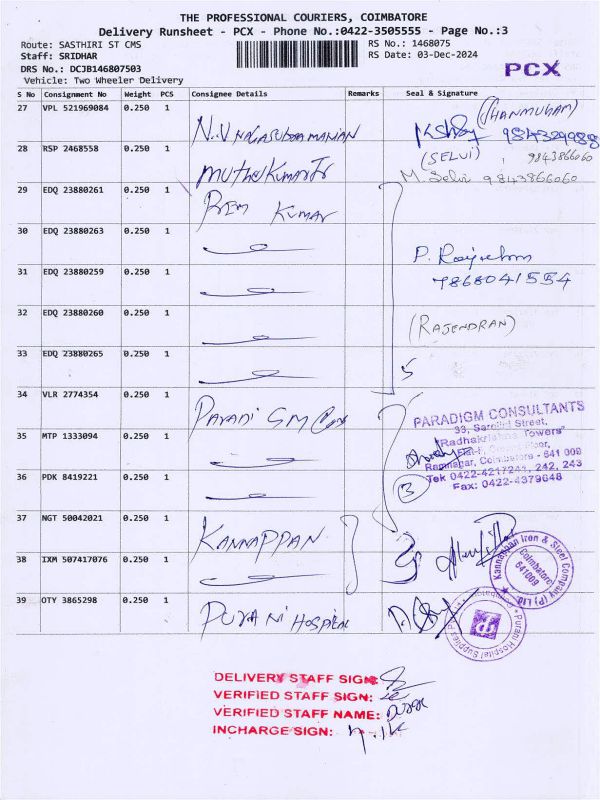 THE PROFESSIONAL COURIERS, COIMBATORE
Delivery Runsheet - PCX - Phone No.:0422-3505555 - Page No.:3
Route: SASTHIRI ST CMS
RS No.: 1468075
Staff: SRIDHAR
RS Date: 03-Dec-2024
DRS No.: DCJB146807503
PCX
Vehicle: Two Wheeler Delivery
S No Consignment No Weight PCS Consignee Details Remarks Seal & Signature
27 VPL 521969084 0.250 1
(SHANMUGAM)
28 RSP 2468558 0.250 1 Muthukumar
(SELVI) 9843866060
M. Selvi 9843866060
29 EDQ 23880261 0.250 1 PREM KUMAR
30 EDQ 23880263 0.250 1
31 EDQ 23880259 0.250 1
9868041554
32 EDQ 23880260 0.250 1
(RAJENDRAN)
33 EDQ 23880265 0.250 1
5
34 VLR 2774354 0.250 1
PARADIGM CONSULTANTS
Street,
35 MTP 1333094 0.250 1
"Radhakrishna Towers"
Floor,
Ramnagar, Coimbatore - 641 009
36 PDK 8419221 0.250 1
242, 243
Fax: 0422-4379648
3
37 NGT 50042021 0.250 1 KANNAPPAN
38 IXM 507417076 0.250 1
Kannappan Iron & Steel Company (P) Ltd.
Coimbatore
641009
39 OTY 3865298 0.250 1 PURANI HOSPITAL
Purani Hospital Supplies
DELIVERY STAFF SIGN:
VERIFIED STAFF SIGN:
VERIFIED STAFF NAME:
INCHARGE SIGN: